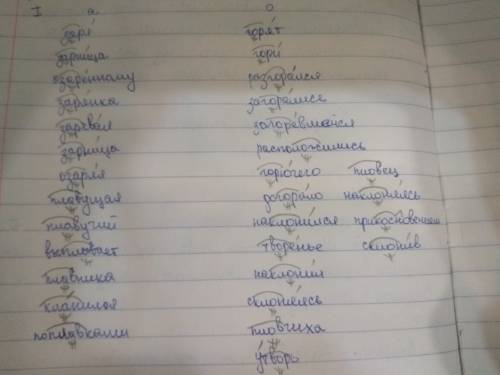 I а о
зари горят
зарница гори
озарённому разгорался
зарянка загорелись
заревая загоревшейся
зарница расположились
озаря горючего пловец
плавущая догорало наклоняясь
плавучий наклонился прикосновение
выплывает творенье склонив
плавника наклоняя
кланялся склоняясь
поплавками пловчиха
утварь